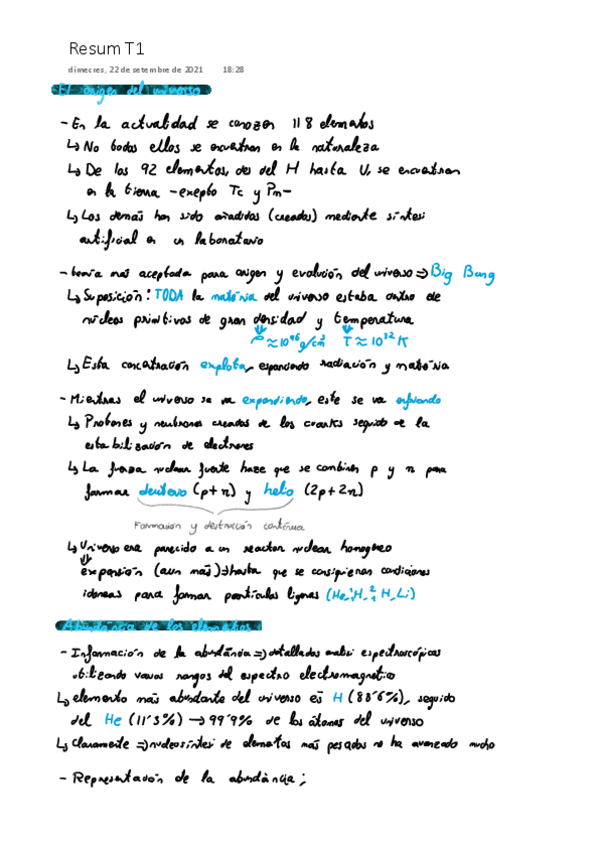 Resum T1
dimecres, 22 de setembre de 2021 18:28
El origen del universo
- En la actualidad se conozen 118 elementos
↳ No todos ellos se encuentran en la naturaleza
↳ De los 92 elementos, des del H hasta U, se encuentran
en la tierra - exepto Tc y Pm -
↳ Los demás han sido añadidos (creados) mediante síntesi
artificial en un laboratorio
- teoría más aceptada para origen y evolución del universo ⇒ Big Bang
↳ Suposición: TODA la matéria del universo estaba dentro de
núcleos primitivos de gran densidad y temperatura
ρ ≈ 10⁹⁶ g/cm³ T ≈ 10³² K
↳ Esta concentración explota, espandiendo radiación y matéria
- Mientras el universo se va expandiendo, este se va enfriando
↳ Protones y neutrones creados de los cuarks seguido de la
estabilización de electrones
↳ La fuerza nuclear fuerte haze que se combinen p y n para
formar deuterio (p+n) y helio (2p+2n)
Formación y destrucción contínua
↳ Universo era parecido a un reactor nuclear homogeneo
⇓
expansión (aun más) ⇒ hasta que se consiguieran condiciones
idoneas para formar partículas ligeras (He, ¹₁H, ²₁H, Li)
Abundáncia de los elementos
- Información de la abundáncia ⇒ detallados analisi espectroscópicos
utilizando varios rangos del espectro electromagnetico
↳ elemento más abundante del universo es H (88'6%), seguido
del He (11'3%) → 99'9% de los átomos del universo
↳ Claramente ⇒ nucleosíntesi de elementos más pesados no ha avanzado mucho
- Representación de la abundáncia;